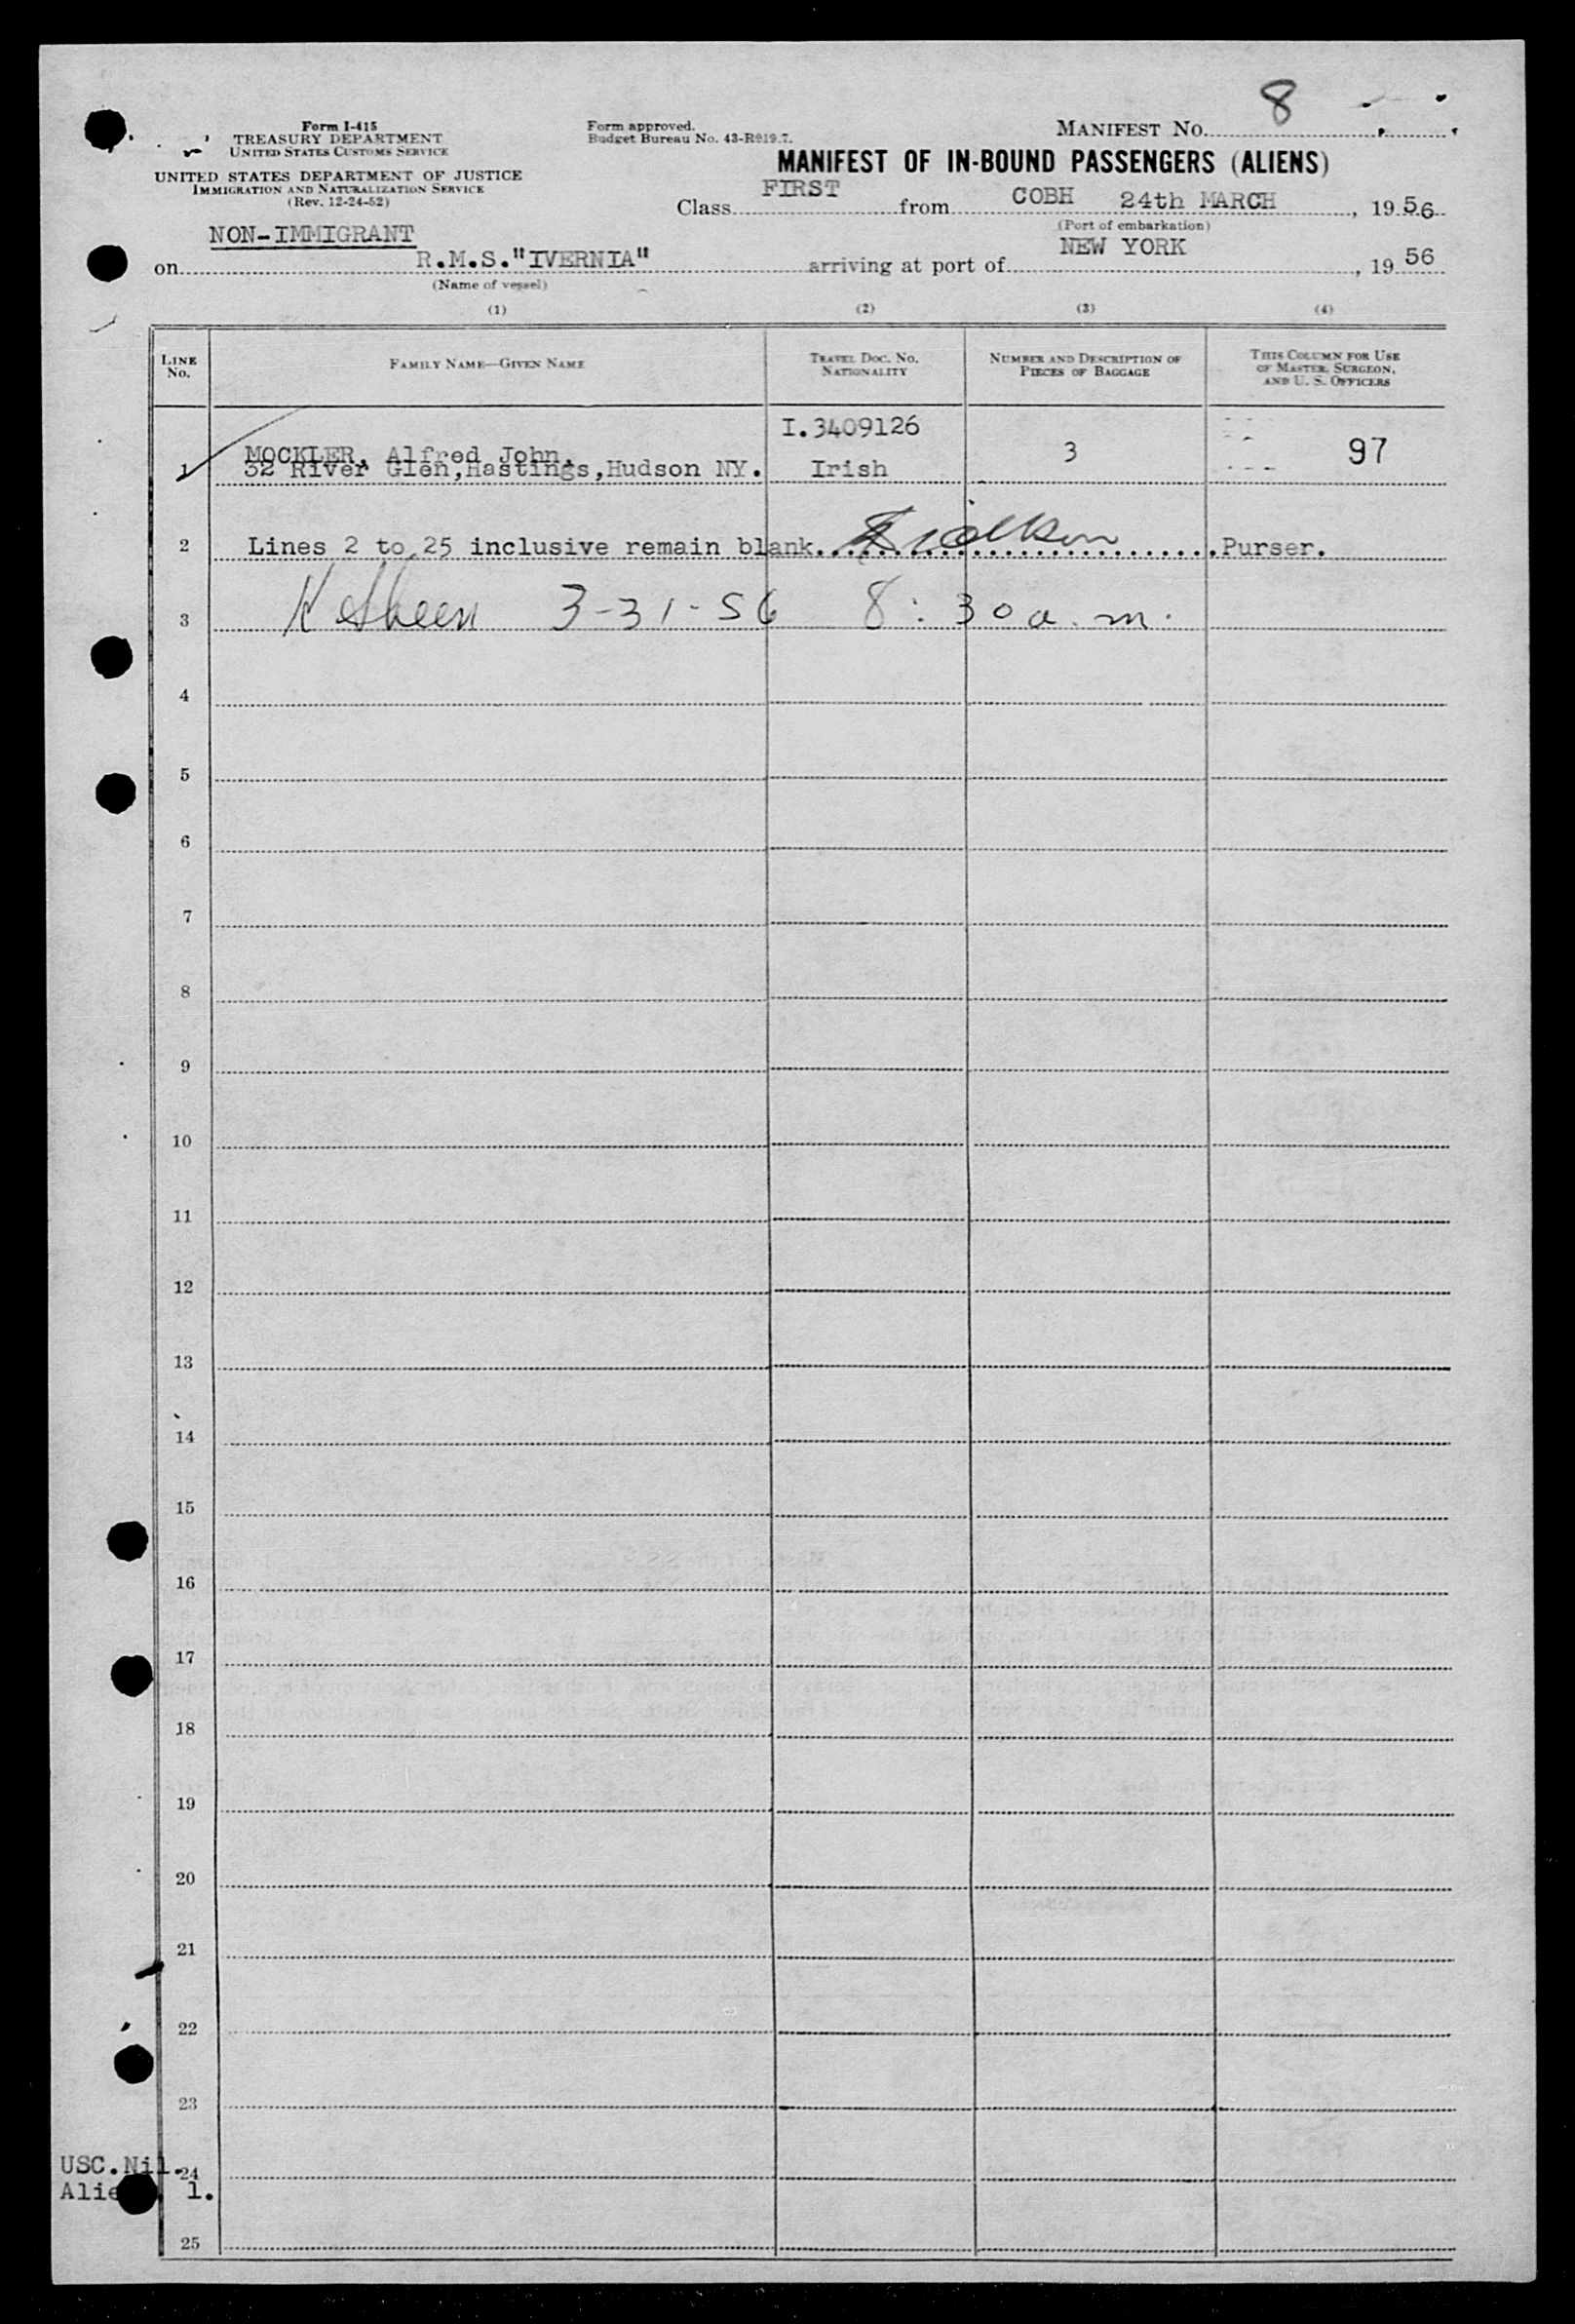 8
Form I-415
TREASURY DEPARTMENT
UNITED STATES CUSTOMS SERVICE
UNITED STATES DEPARTMENT OF JUSTICE
IMMIGRATION AND NATURALIZATION SERVICE
(Rev. 12-24-52)
Form approved.
Budget Bureau No. 43-R019.7.
MANIFEST No.
MANIFEST OF IN-BOUND PASSENGERS (ALIENS)
Class FIRST from COBH 24th MARCH, 1956
(Port of embarkation)
NON-IMMIGRANT
on R.M.S."IVERNIA" arriving at port of NEW YORK, 1956
(Name of vessel)
(1) (2) (3) (4)
LINE No. FAMILY NAME—GIVEN NAME TRAVEL DOC. No. NATIONALITY NUMBER AND DESCRIPTION OF PIECES OF BAGGAGE THIS COLUMN FOR USE OF MASTER, SURGEON, AND U. S. OFFICERS
I.3409126
MOCKLER, Alfred John, 3 97
1 32 River Glen,Hastings,Hudson NY. Irish
2 Lines 2 to 25 inclusive remain blank. Purser.
3 3-31-56 8:30 a.m.
4
5
6
7
8
9
10
11
12
13
14
15
16
17
18
19
20
21
22
23
USC.Nil.
24
Alie 1.
25